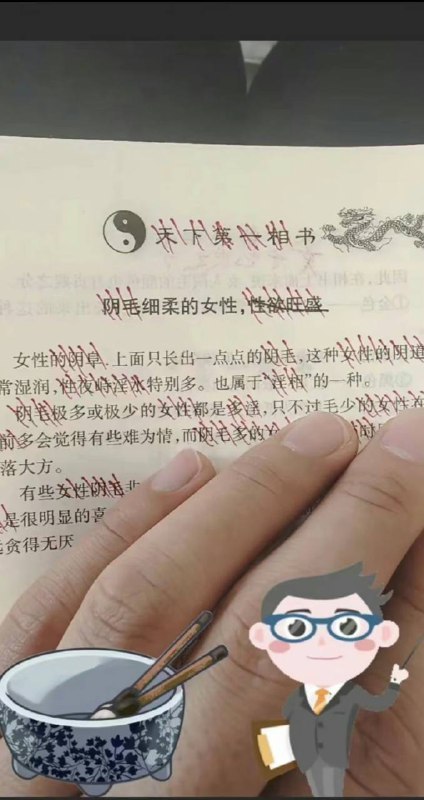 天下第一相书
阴毛细柔的女性，性欲旺盛
女性的阴阜，上面只长出一点点的阴毛，这种女性的阴道
常湿润，性交时淫水特别多。也属于“淫相”的一种。
阴毛极多或极少的女性都是多淫，只不过毛少的女性在
前多会觉得有些难为情，而阴毛多的
落大方。
有些女性阴毛非
是很明显的喜
贪得无厌